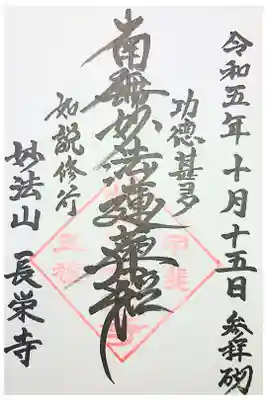 令和五年十月十五日 参拝砌
功徳甚多
南無妙法蓮華経
如説修行
妙法山 長栄寺